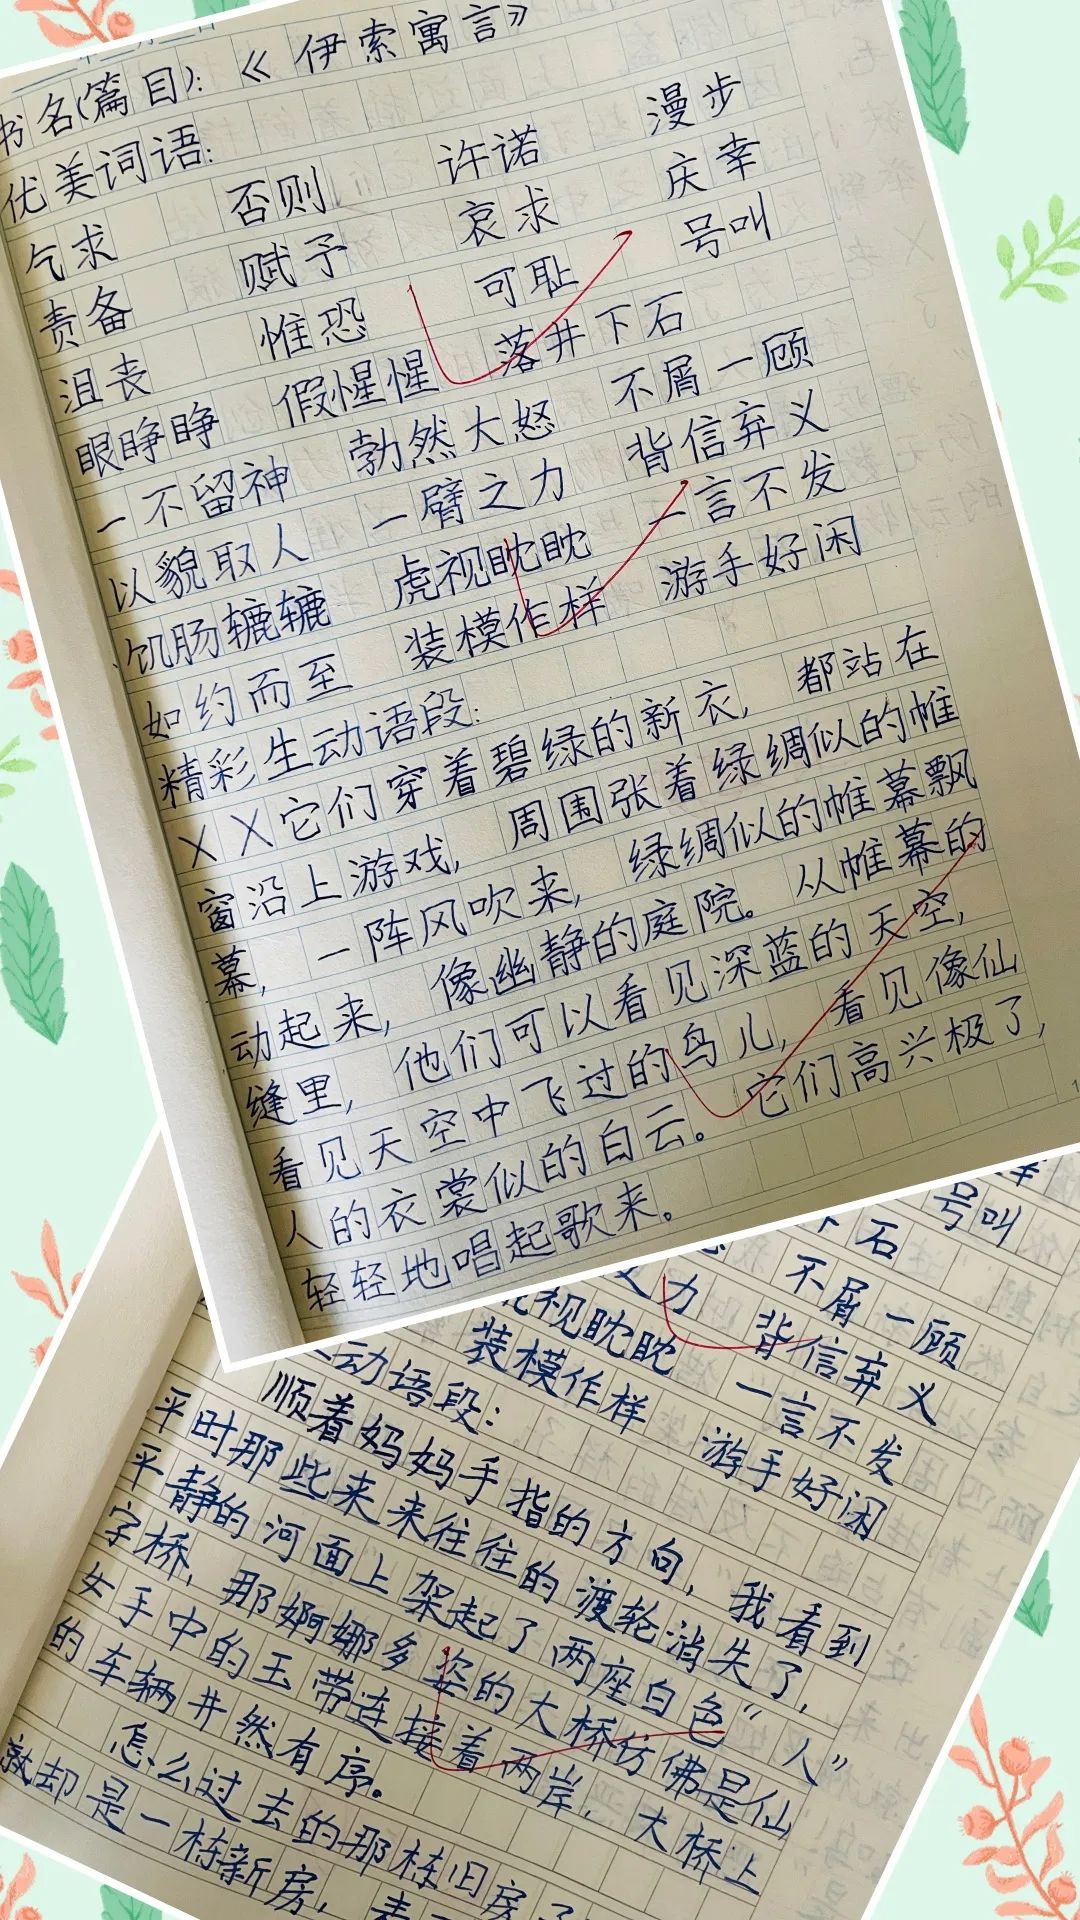 书名(篇目):《伊索寓言》
优美词语:
乞求 否则 许诺 漫步
责备 赋予 哀求 庆幸
沮丧 惟恐 可耻 号叫
眼睁睁 假惺惺 落井下石
一不留神 勃然大怒 不屑一顾
以貌取人 一臂之力 背信弃义
饥肠辘辘 虎视眈眈 一言不发
如约而至 装模作样 游手好闲
精彩生动语段:
XX它们穿着碧绿的新衣,都站在
窗沿上游戏,周围张着绿绸似的帷
幕,一阵风吹来,绿绸似的帷幕飘
动起来,像幽静的庭院。从帷幕的
缝里,他们可以看见深蓝的天空,
看见天空中飞过的鸟儿,看见像仙
人的衣裳似的白云。它们高兴极了,
轻轻地唱起歌来。
号叫
下石
不屑一顾
之力 背信弃义
视眈眈 一言不发
装模作样 游手好闲
动语段:
顺着妈妈手指的方向,我看到
平时那些来来往往的渡轮消失了,
平静的河面上架起了两座白色“人”
字桥,那婀娜多姿的大桥仿佛是仙
女手中的玉带连接着两岸,大桥上
的车辆井然有序。
怎么过去的那栋旧房子
就却是一栋新房,